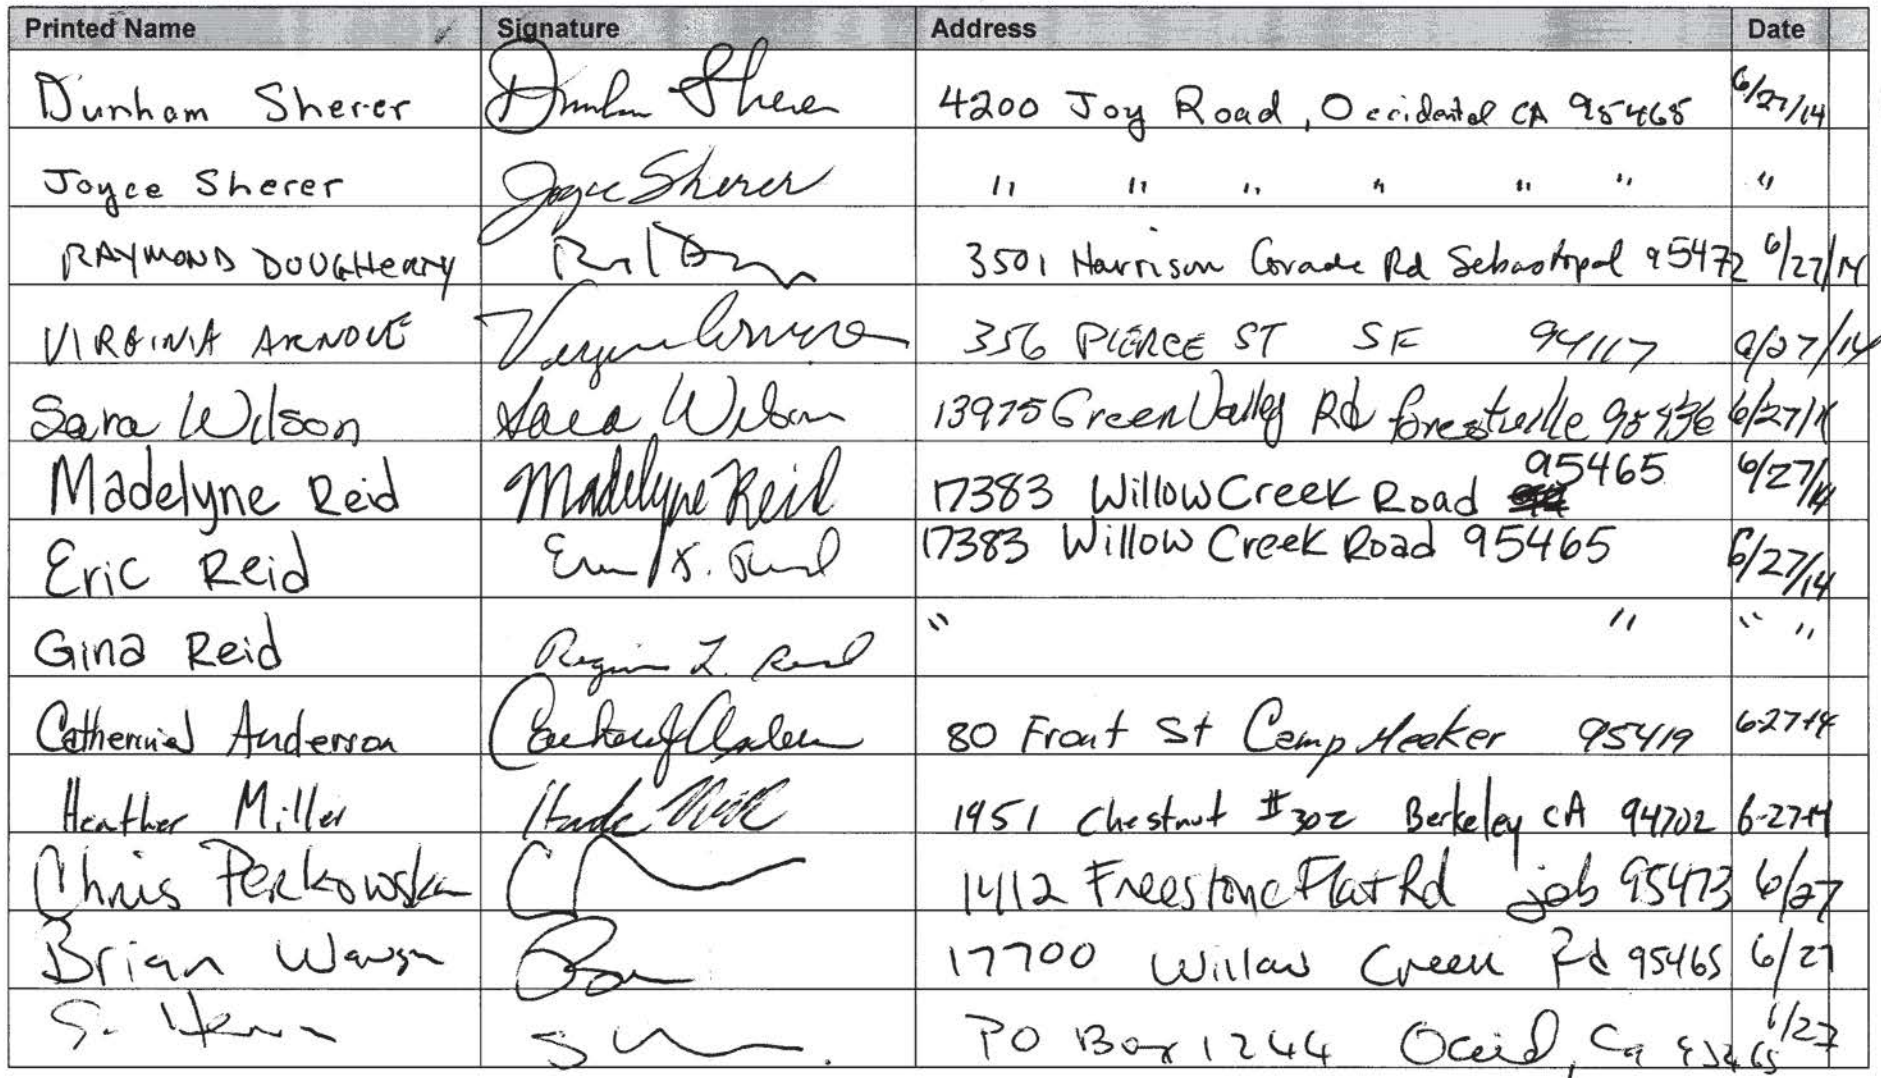 Printed Name Signature Address Date
Dunham Sherer Dunham Sherer 4200 Joy Road, Occidental CA 95465 6/27/14
Joyce Sherer Joyce Sherer " " " " " " "
RAYMOND DOUGHERTY 3501 Harrison Grade Rd Sebastopol 95472 6/27/14
VIRGINIA ARNOVE 356 PIERCE ST SF 94117 6/27/14
Sara Wilson Sara Wilson 13975 Green Valley Rd forestville 95436 6/27/14
Madelyne Reid Madelyne Reid 17383 Willow Creek Road 95465 6/27/14
Eric Reid 17383 Willow Creek Road 95465 6/27/14
Gina Reid Regina L. Reid " " " "
Anderson 80 Front St Camp Meeker 95419 6-27-14
Heather Miller 1951 Chestnut #302 Berkeley CA 94702 6-27-14
Chris 1412 Freestone Flat Rd 95473 6/27
Brian 17700 Willow Creek Rd 95465 6/27
S. PO Box 1244 Occid, Ca 95465 6/27